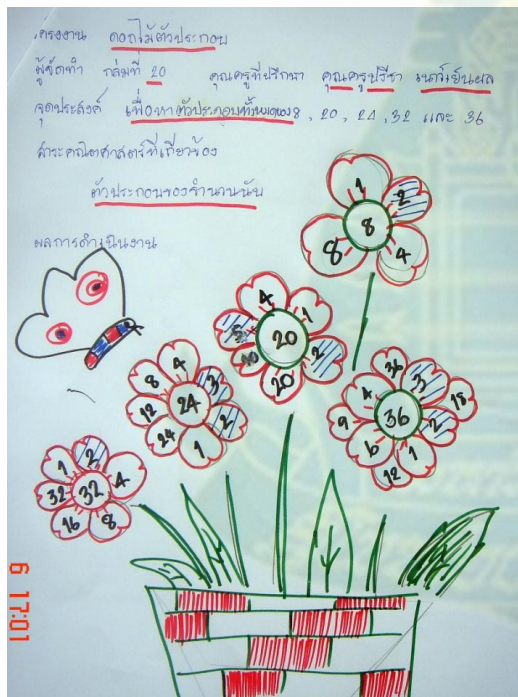 โครงงาน ดอกไม้ตัวประกอบ
ผู้จัดทำ กลุ่มที่ 20 คุณครูที่ปรึกษา คุณครูปรีชา เนาว์เย็นผล
จุดประสงค์ เพื่อหาตัวประกอบทั้งหมดของ 8, 20, 24, 32 และ 36
สาระคณิตศาสตร์ที่เกี่ยวข้อง
ตัวประกอบของจำนวนนับ
ผลการดำเนินงาน
1 2
8
8 4
4 1
5 20 2
10 20
8 4 3
12 24 2
24 1
4 36 3 18
9 36 2
6 12 1
1 2 4
32 32
16 8
6 17:01